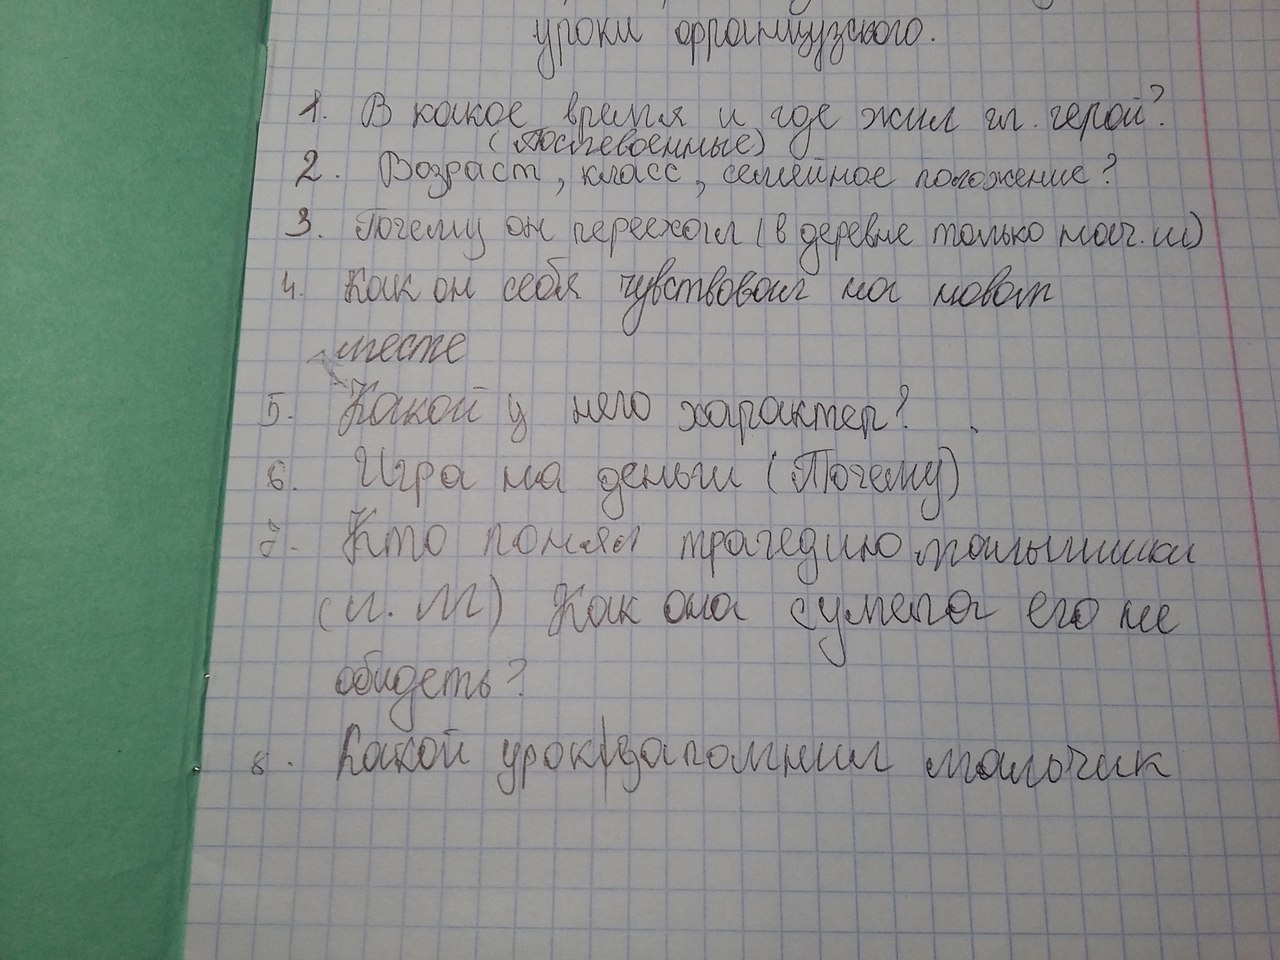 уроки французского.
1. В какое время и где жил гл. герой?
(Послевоенные)
2. Возраст, класс, семейное положение?
3. Почему он переехал (в деревне только нач. ш)
4. Как он себя чувствовал на новом
месте
5. Какой у него характер?
6. Игра на деньги (Почему)
7. Кто понял трагедию мальчишки
(л. М) Как она сумела его не
обидеть?
8. Какой урок запомнил мальчик